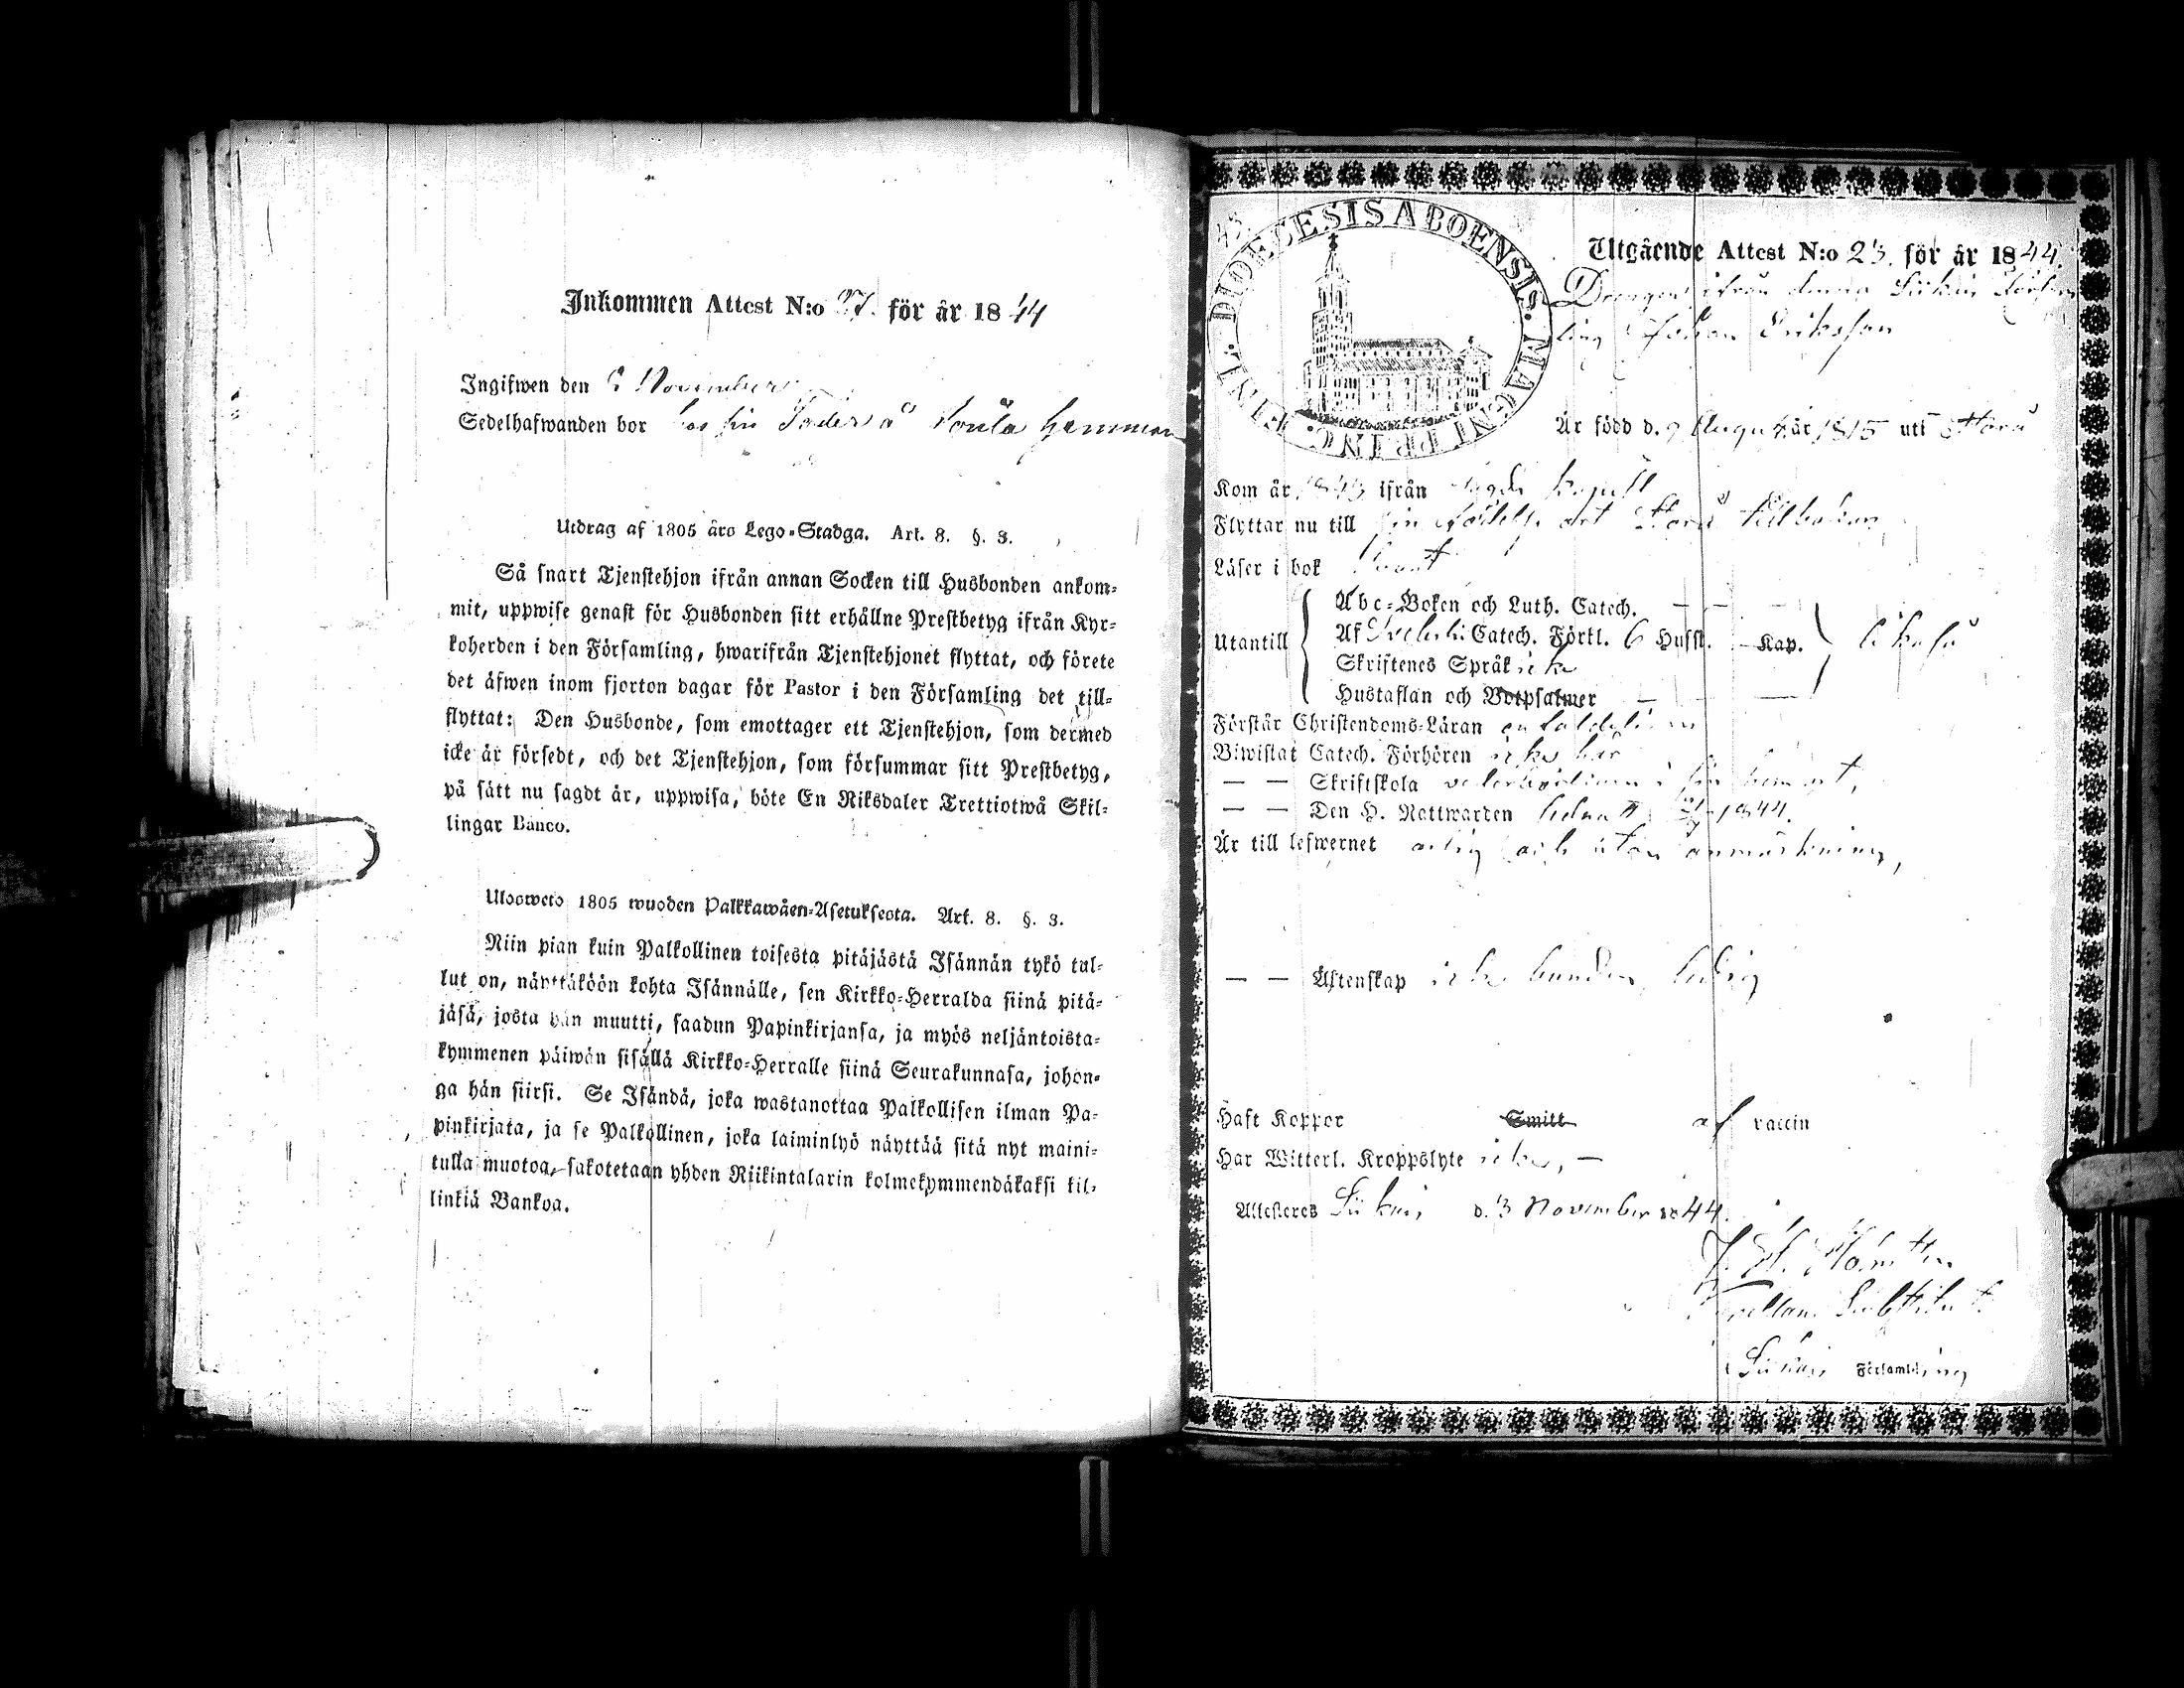 Inkommen Attest N:o 27. för år 1844
Ingifwen den 6 November
Sedelhafwanden bor hos sin Fader å Hemman
Utdrag af 1805 års Lego-Stadga. Art. 8. §. 3.
Så snart Tjenstehjon ifrån annan Socken till Husbonden ankom-
mit, uppwise genast för Husbonden sitt erhållne Prestbetyg ifrån Kyr-
koherden i den Församling, hwarifrån Tjenstehjonet flyttat, och förete
det äfwen inom fjorton dagar för Pastor i den Församling det till-
flyttat: Den Husbonde, som emottager ett Tjenstehjon, som dermed
icke är försedt, och det Tjenstehjon, som försummar sitt Prestbetyg,
på sätt nu sagdt är, uppwisa, böte En Riksdaler Trettiotwå Skil-
lingar Banco.
Ulosweto 1805 wuoden Palkkawäen-Asetuksesta. Art. 8. §. 3.
Niin pian kuin Palkollinen toisesta pitäjästä Isännän tykö tul-
lut on, näyttäköön kohta Isännälle, sen Kirkko-Herralda siinä pitä-
jäsä, josta hän muutti, saadun Papinkirjansa, ja myös neljäntoista-
kymmenen päiwän sisällä Kirkko-Herralle siinä Seurakunnasa, johon-
ga hän siirsi. Se Isändä, joka wastanottaa Palkollisen ilman Pa-
pinkirjata, ja se Palkollinen, joka laiminlyö näyttää sitä nyt maini-
tulla muotoa, sakotetaan yhden Riikintalarin kolmekymmendäkaksi kil-
linkiä Bankoa.
DIOECESIS ABOENSIS. MAGNI PRINC: FINL.
Utgående Attest N:o 23. för år 1844.
Drengen ifrån denna Församling
Johan Eriksson
Är född d. 9 August. år 1815 uti
Kom år 1843 ifrån
Flyttar nu till sin födelse ort tillbakas,
Läser i bok svagt
Utantill
Abc-Boken och Luth. Catech. — — —
Af Svebelii Catech. Förkl. 6 Husst. — Kap. likaså
Skriftenes Språk icke
Hustaflan och Botpsalmer — —
Förstår Christendoms-Läran
Biwistat Catech. Förhören icke här
— — Skriftskola vederbörligen i sin hemort,
— — Den H. Nattwarden 1844.
Är till lefwernet ärlig och utan anmärkning,
— — Äktenskap icke bunden, ledig
Haft Koppor Smitt af vaccin
Har Witterl. Kroppslyte icke, —
Attesteras d. 3 November 1844.
Substitut.
i Församling